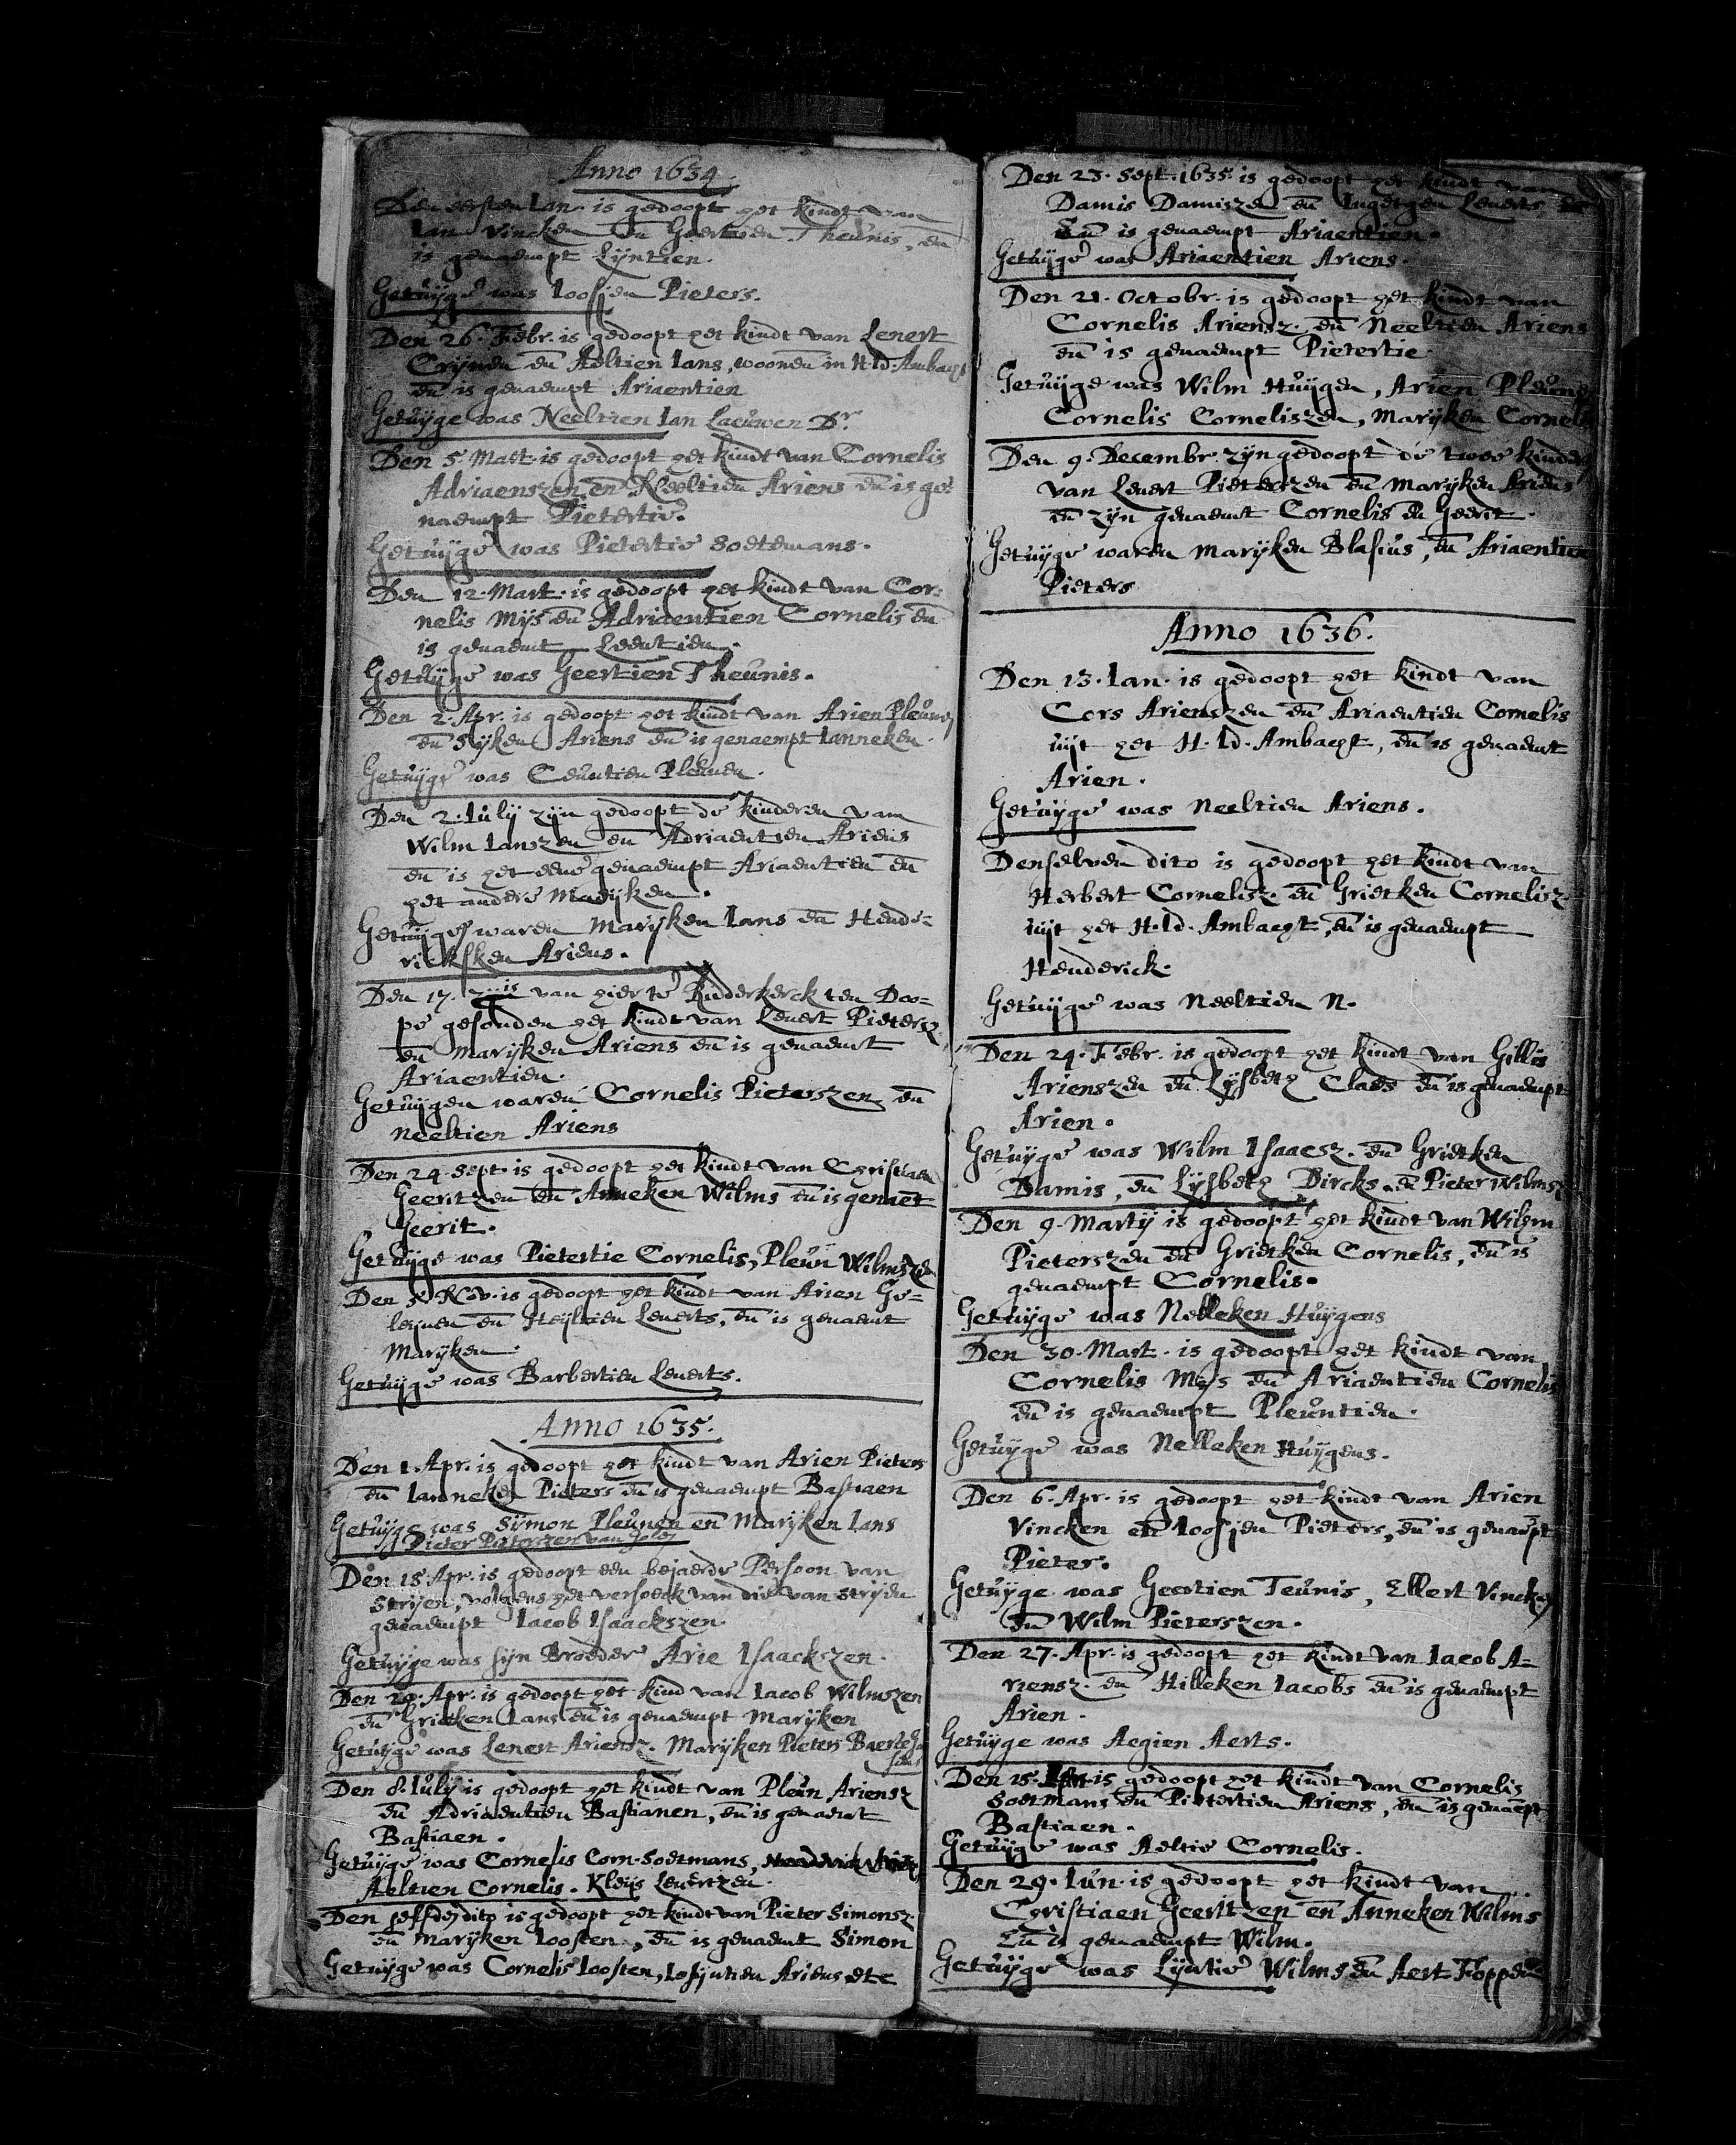 Anno 1634.
Den eersten Ian. is gedoopt het kindt van
Ian Vincken en Geertien Theunis, en
is genaempt Lijntien.
Getuijge was Ioosjen Pieters.
Den 26. Febr. is gedoopt het kindt van Lenert
Crijnen en Aeltien Ians, woonen in H. Id. Ambacht
en is genaempt Ariaentien
Getuijge was Neeltien Ian Leeuwen Dr.
Den 5. Mart. is gedoopt het kindt van Cornelis
Adriaenszen en Neeltien Ariens en is ge-
naempt Pietertie.
Getuijge was Pietertie Soetemans.
Den 12. Mart. is gedoopt het kindt van Cor-
nelis Mijs en Adriaentien Cornelis en
is genaemt Leentien.
Getuijge was Geertien Theunis.
Den 2. Apr. is gedoopt het kindt van Arien Pleunen
en Sijken Ariens en is genaempt Ianneken.
Getuijge was Pleunen.
Den 2. Iulij zijn gedoopt de kinderen van
Wilm Ianszen en Adriaentien Ariens
en is het eene genaempt Ariaentien en
het andere Marijken.
Getuijge waren Marijken Ians en Hende-
ricksken Ariens.
Den 17. is van hier te Ridderkerck ten Doo-
pe gesonden het kindt van Lenert Pietersz.
en Marijken Ariens en is genaemt
Ariaentien.
Getuijgen waren Cornelis Pieterszen, en
Neeltien Ariens
Den 24. Sept. is gedoopt het kindt van Christiaen
Geeritzen en Anneken Wilms en is genaet
Geerit.
Getuijge was Pietertie Cornelis, Pleun Wilmszen
Den 5. Nov. is gedoopt het kindt van Arien Ge-
leijnen en Heijltien Lenerts, en is genaemt
Marijken.
Getuijge was Barbertien Lenerts.
Anno 1635.
Den 1. Apr. is gedoopt het kindt van Arien Pieters
en Ianneken Pieters en is genaempt Bastiaen
Getuijge was Sijmon Pleunen en Marijken Ians
Pieter Pieterszen van
Den 15. Apr. is gedoopt een bejaerde Persoon van
Strijen, volgens het versoeck van die van Strijen
genaempt Iacob Isaackszen.
Getuijge was sijn Broeder Arie Isaackszen.
Den 29. Apr. is gedoopt het kind van Iacob Wilmszen
en Grietken Ians en is genaempt Marijken
Getuijge was Lenert Ariensz. Marijken Pieters
Den 8. Iulij is gedoopt het kindt van Pleun Ariensz
en Adriaentien Bastianen, en is genaemt
Bastiaen.
Getuijge was Cornelis Corn. Soetmans,
Aeltien Cornelis. Kleijs Lenertzen.
Den selfden dito is gedoopt het kindt van Pieter Simonsz.
en Marijken Ioosten, en is genaemt Simon
Getuijge was Cornelis Ioosten, Iosijntien Ariens etc
Den 23. Sept. 1635. is gedoopt het kindt van
Damis Damiszen en Ingetgen Lenerts
En is genaempt Ariaentien.
Getuijge was Ariaentien Ariens.
Den 21. Octobr. is gedoopt het kindt van
Cornelis Ariensz. en Neeltien Ariens
en is genaempt Pietertie.
Getuijge was Wilm Huijgen, Arien Pleunen
Cornelis Corneliszen, Marijken Cornelis
Den 9. Decembr. zijn gedoopt de twee kinderen
van Lenert Pieterszen en Marijken Ariens
en zijn genaemt Cornelis en Geerit.
Getuijge waren Marijken Blasius, en Ariaentien
Pieters
Anno 1636.
Den 13. Ian. is gedoopt het kindt van
Cors Arienszen en Ariaentien Cornelis
uijt het H. Id. Ambacht, en is genaemt
Arien.
Getuijge was Neeltien Ariens.
Denselven dito is gedoopt het kindt van
Herbert Cornelisz. en Grietken Cornelisz
uijt het H. Id. Ambacht, en is genaempt
Henderick.
Getuijge was Neeltien N.
Den 24. Febr. is gedoopt het kindt van Gillis
Arienszen en Lijsbeth Claes en is genaempt
Arien.
Getuijge was Wilm Isaacsz. en Grietken
Damis, en Lijsbeth Dircks. en Pieter Wilmsz
Den 9. Martij is gedoopt het kindt van Wilem
Pieterszen en Grietken Cornelis, en is
genaempt Cornelis.
Getuijge was Nelleken Huijgens
Den 30. Mart. is gedoopt het kindt van
Cornelis Mijs en Ariaentien Cornelis
en is genaempt Pleuntien.
Getuijge was Nelleken Huijgens.
Den 6. Apr. is gedoopt het kindt van Arien
Vincken en Ioosjen Pieters, en is genaempt
Pieter.
Getuijge was Geertien Teunis, Ellert Vincken
en Wilm Pieterszen.
Den 27. Apr. is gedoopt het kindt van Iacob A-
riensz. en Hilleken Iacobs en is genaempt
Arien.
Getuijge was Aegien Aerts.
Den 15. is gedoopt het kindt van Cornelis
Soetmans en Pietertien Ariens, en is genaempt
Bastiaen.
Getuijge was Aeltie Cornelis.
Den 29. Iun. is gedoopt het kindt van
Christiaen Geeritzen en Anneken Wilms
En is genaempt Wilm.
Getuijge was Lijntie Wilms en Aert Foppen